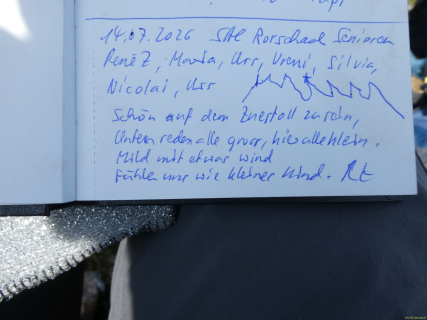 14.07.2026 SAC Rorschach Senioren
René Z, Maria, Urs, Vreni, Silvia,
Nicolai, Urs
Schön auf dem zu sein,
Unten reden alle gross, hier alle klein.
Mild mit etwas Wind
Fühlen uns wie kleiner Kind. RZ